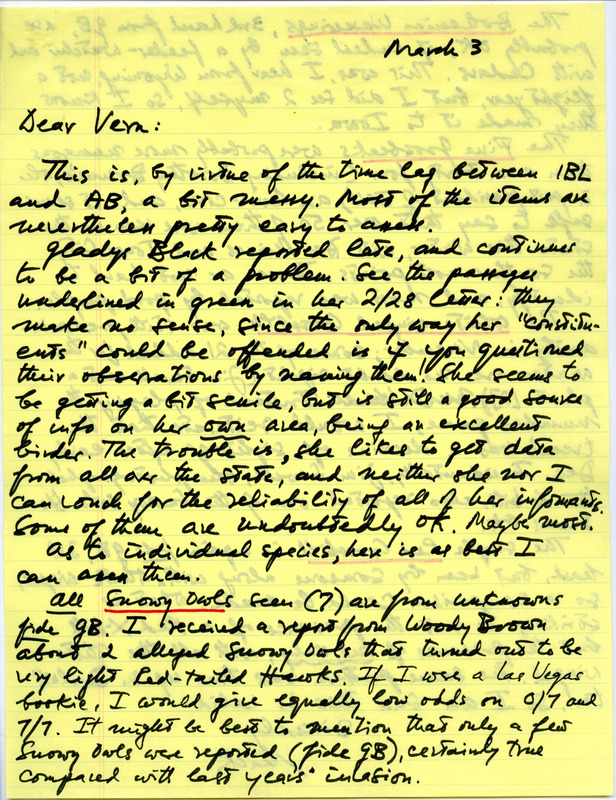 March 3
Dear Vern:
This is, by virtue of the time lag between IBL
and AB, a bit messy. Most of the items are
nevertheless pretty easy to assess.
Gladys Black reported late, and continues
to be a bit of a problem. See the passages
underlined in green in her 2/28 letter: they
make no sense, since the only way her "constitu-
ents" could be offended is if you questioned
their observations by naming them. She seems to
be getting a bit senile, but is still a good source
of info on her own area, being an excellent
birder. The trouble is, she likes to get data
from all over the state, and neither she nor I
can vouch for the reliability of all of her informants.
Some of them are undoubtedly OK. Maybe most.
As to individual species, here is as best I
can assess them.
All Snowy Owls seen (7) are from unknowns
fide GB. I received a report from Woody Brown
about 2 alleged Snowy Owls that turned out to be
very light Red-tailed Hawks. If I were a Las Vegas
bookie, I would give equally low odds on 0/7 and
7/7. It might be best to mention that only a few
Snowy Owls were reported (fide GB), certainly true
compared with last years' invasion.